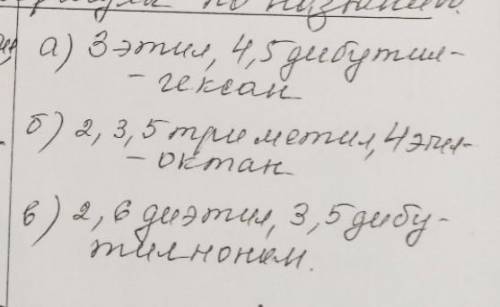 по названию.
а) 3 этил, 4,5 дибутил-
- гексан
б) 2, 3, 5 три метил, 4 этил-
- октан
в) 2, 6 диэтил, 3, 5 дибу-
тилнонан.